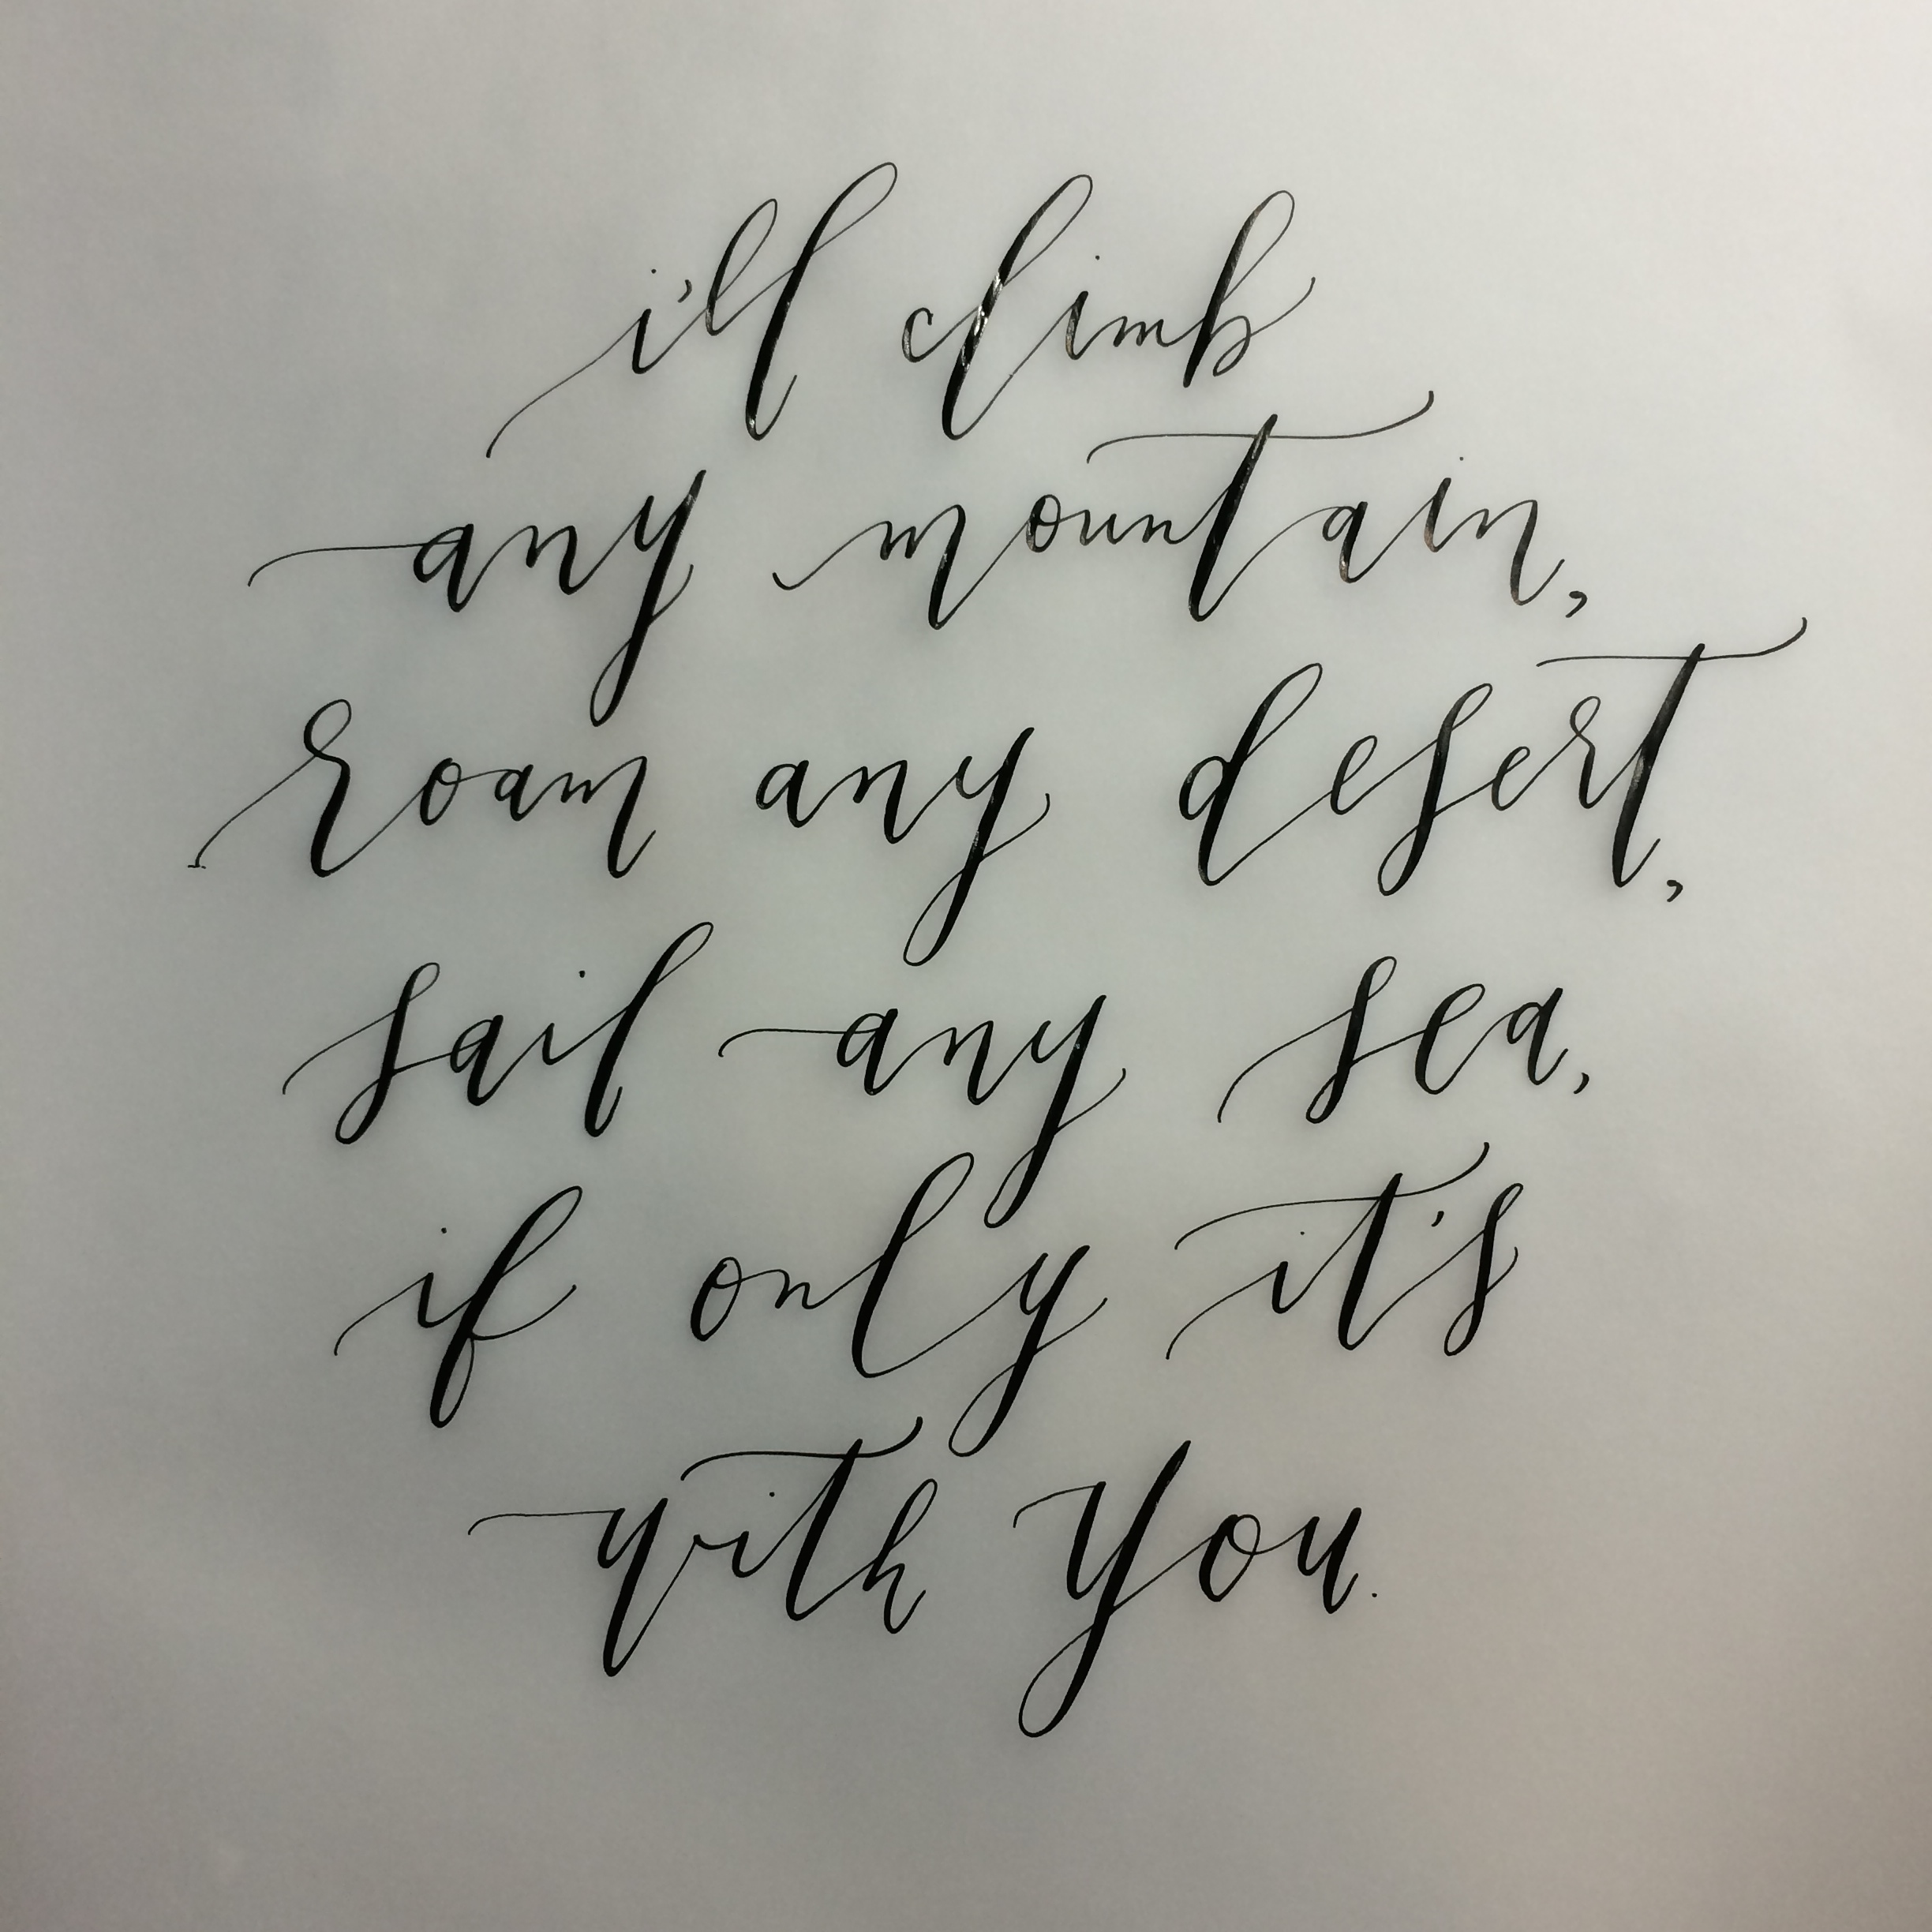 i'll climb
any mountain,
roam any desert,
sail any sea,
if only it's
with you.